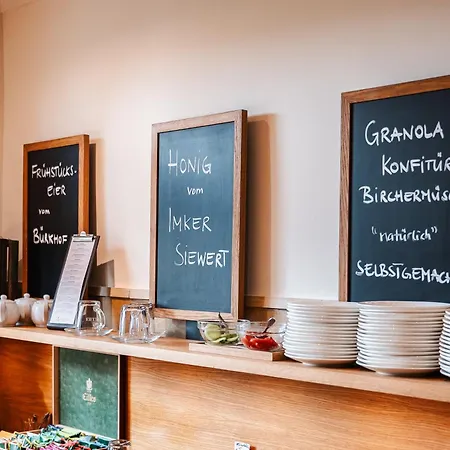 FRÜHSTÜCKS-
EIER
vom
BÜRKHOF
HONIG
vom
IMKER
SIEWERT
GRANOLA
KONFITÜR
BIRCHERMÜS
"natürlich"
SELBSTGEMACH
Eilles